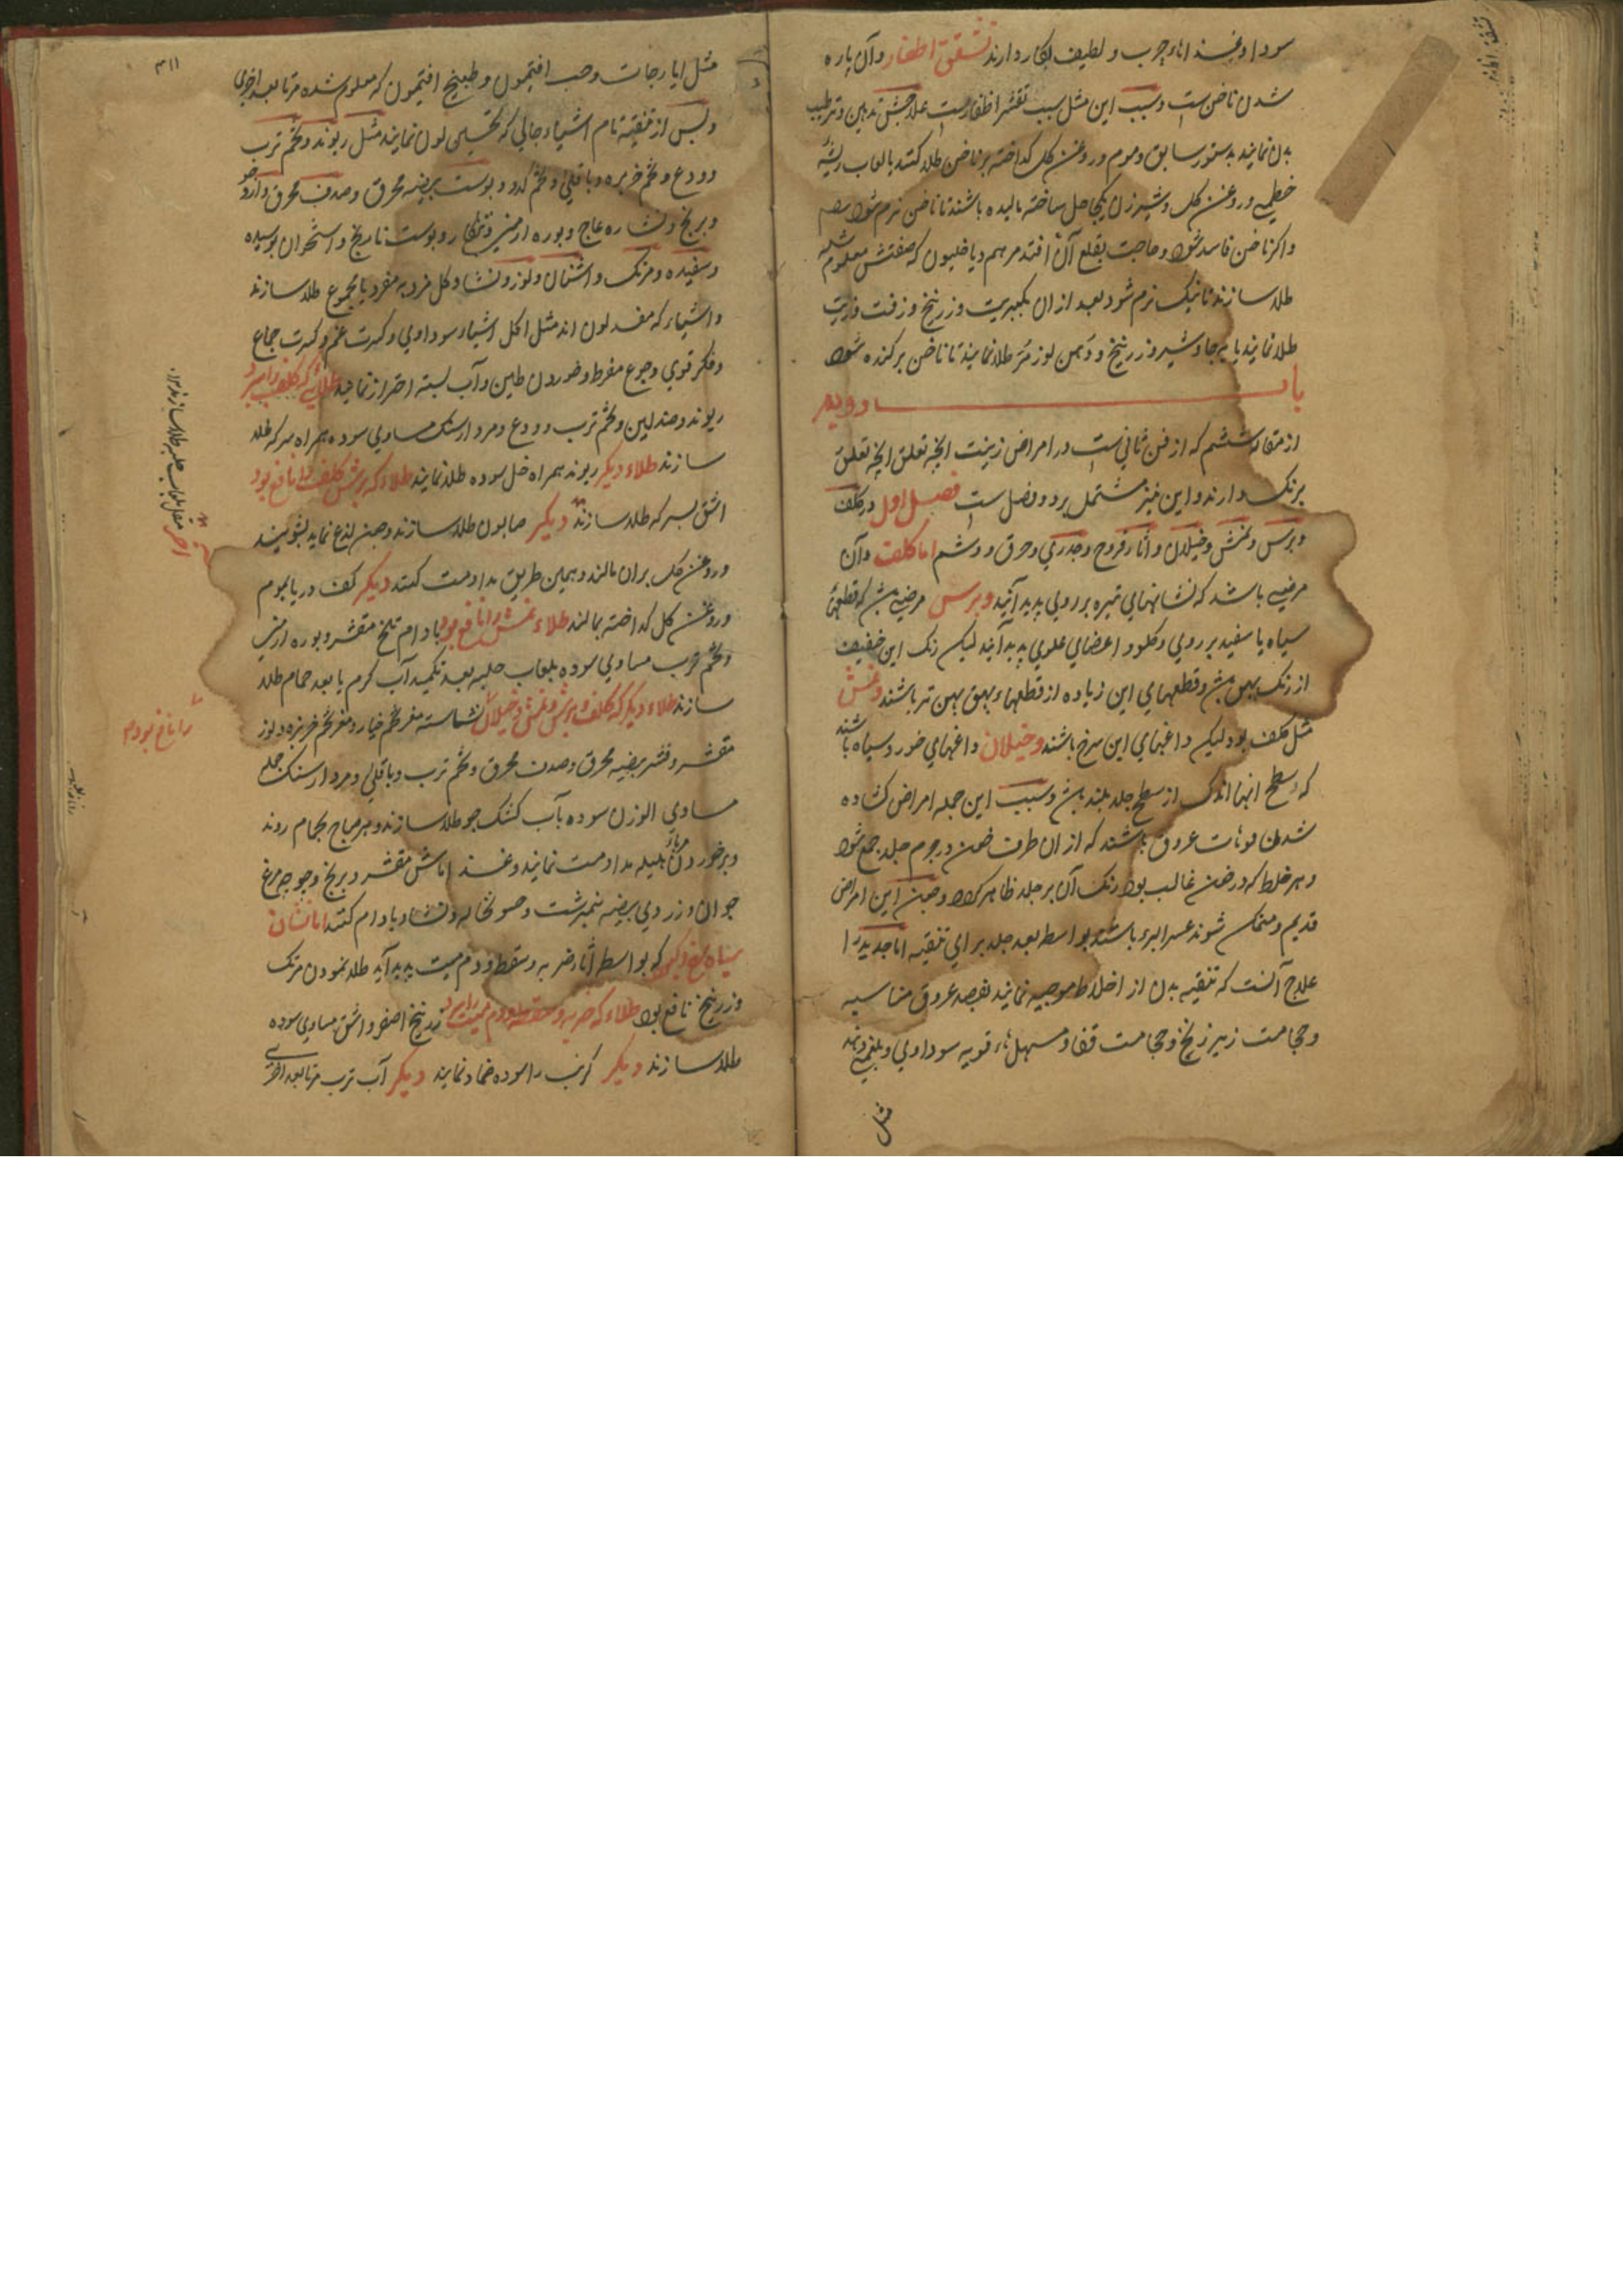 سودا وغذاهاء چرب ولطیف بکار دارند تشقق اظفار وآن پاره
شدن ناخن است وسبب این مثل سبب تقشر اظفارست علاجش تدهین وترطیب
بدن نمایند بدستور سابق وموم وروغن کل کداخته بر ناخن طلا کنند یا لعاب ریشه
خطمی وروغن کل وشیر زن یکجا حل ساخته مالیده باشند تا ناخن نرم شود
واکر ناخن فاسد شود وحاجت بقلع آن افتد مرهم دیاخلیون که صفتش معلوم شد
طلا سازند تا نیک نرم شود بعد از ان بکبریت وزرنیخ وزفت وزیت
طلا نمایند یا بجاوشیر وزرنیخ ودهن لوز مر طلا نمایند تا ناخن برکنده شود
باب دویم
از مقاله ششم که از فن ثانی است در امراض زینت انچه تعلق
برنک دارند واین نیز مشتمل بر دو فصل است فصل اول در کلف
وبرش ونمش وخیلان وآثار قروح وجدری وحرق ووشم اما کلف وآن
مرضی باشد که نشانهای تیره بر روی پدید آیند وبرس مرضی که قطعهاء
سیاه یا سفید بر روی وکلو واعضای علوی پدید آیند لیکن رنک این خفیف
از رنک بهق وقطعهای این زیاده از قطعهاء بهق پهن تر باشند ونمش
مثل کلف بود لیکن داغهای این سرخ باشند وخیلان داغهای خورد سیاه باشند
که سطح انها اندک از سطح جلد بلند وسبب این جمله امراض کشاده
شدن فوهات عروق باشند که از ان طرف خون در جرم جلد جمع شود
وهر خلط که در خون غالب بود رنک آن بر جلد ظاهر کردد وچون این امراض
قدیم ومتمکن شوند عسر البرء باشند بواسطه بعد جلد برای تنقیه اما جدید را
علاج آنست که تنقیه بدن از اخلاط موجبه نمایند بفصد عروق مناسبه
وحجامت زیر زنخ وحجامت قفا ومسهلهاء قویه سوداوی وبلغمی
مثل
۳۱۱
مثل ایارجات وحب افتیمون وطبیخ افتیمون که معلوم شده مرتا بعد اخری
وپس از تنقیه تام اشیاء جالی که تحسین لون نمایند مثل ریوند وتخم ترب
وودع وتخم خربزه وباقلی وتخم کدو وپوست بیضه محرق وصدف محرق وآرد جو
وبرنج ونشاره عاج وبوره ارمنی وتنکار وپوست نارنج واستخوان پوسیده
وسفیده ومرتک واشنان ولوز ونشا وکل فرد به مفرد یا مجموع طلا سازند
واشیاء که مفسد لون اند مثل اکل اشیاء سوداوی وکثرت غم وکثرت جماع
وفکر قوی وجوع مفرط وخوردن طین وآب بسته احتراز نمایند طلائی که کلف را ببرد
ریوند وصندلین وتخم ترب وودع ومردارسنک مساوی سوده همراه سرکه طلا
سازند طلاء دیکر ریوند همراه خل سوده طلا نمایند طلاء که برش وکلف را نافع بود
اشق بسرکه طلا سازند دیکر صابون طلا سازند وچون لذع نماید بشویند
وروغن کل بران مالند وهمین طریق مداومت کنند دیکر کف دریا بموم
وروغن کل کداخته بمالند طلاء نمش را نافع بود بادام تلخ مقشر وبوره ارمنی
وتخم ترب مساوی سوده بلعاب حلبه بعد تکمید آب کرم یا بعد حمام طلا
سازند طلاء دیکر که کلف وبرش ونمش وخیلان نشاسته مغز تخم خیار ومغز تخم خربزه ولوز
را نافع بود
مقشر وقشر بیضه محرق وصدف محرق وتخم ترب وباقلی ومردارسنک جمله
مساوی الوزن سوده بآب کشک جو طلا سازند وهر صباح بحمام روند
وبر خوردن مرباء هلیله مداومت نمایند وغذا ماش مقشر وبرنج وجوجه مرغ
جوان وزردی بیضه نیمبرشت وحسو نخاله ونشا وبادام کنند اما نشان
سیاه که بواسطه آثار ضربه وسقطه ودم میت پدید آید طلا نمودن مرتک
وزرنیخ نافع بود طلاء که ضربه وسقطه ودم میت را ببرد زرنیخ اصفر واشق مساوی سوده
طلا سازند دیکر کرنب را سوده ضماد نمایند دیکر آب ترب مرتا بعد اخری